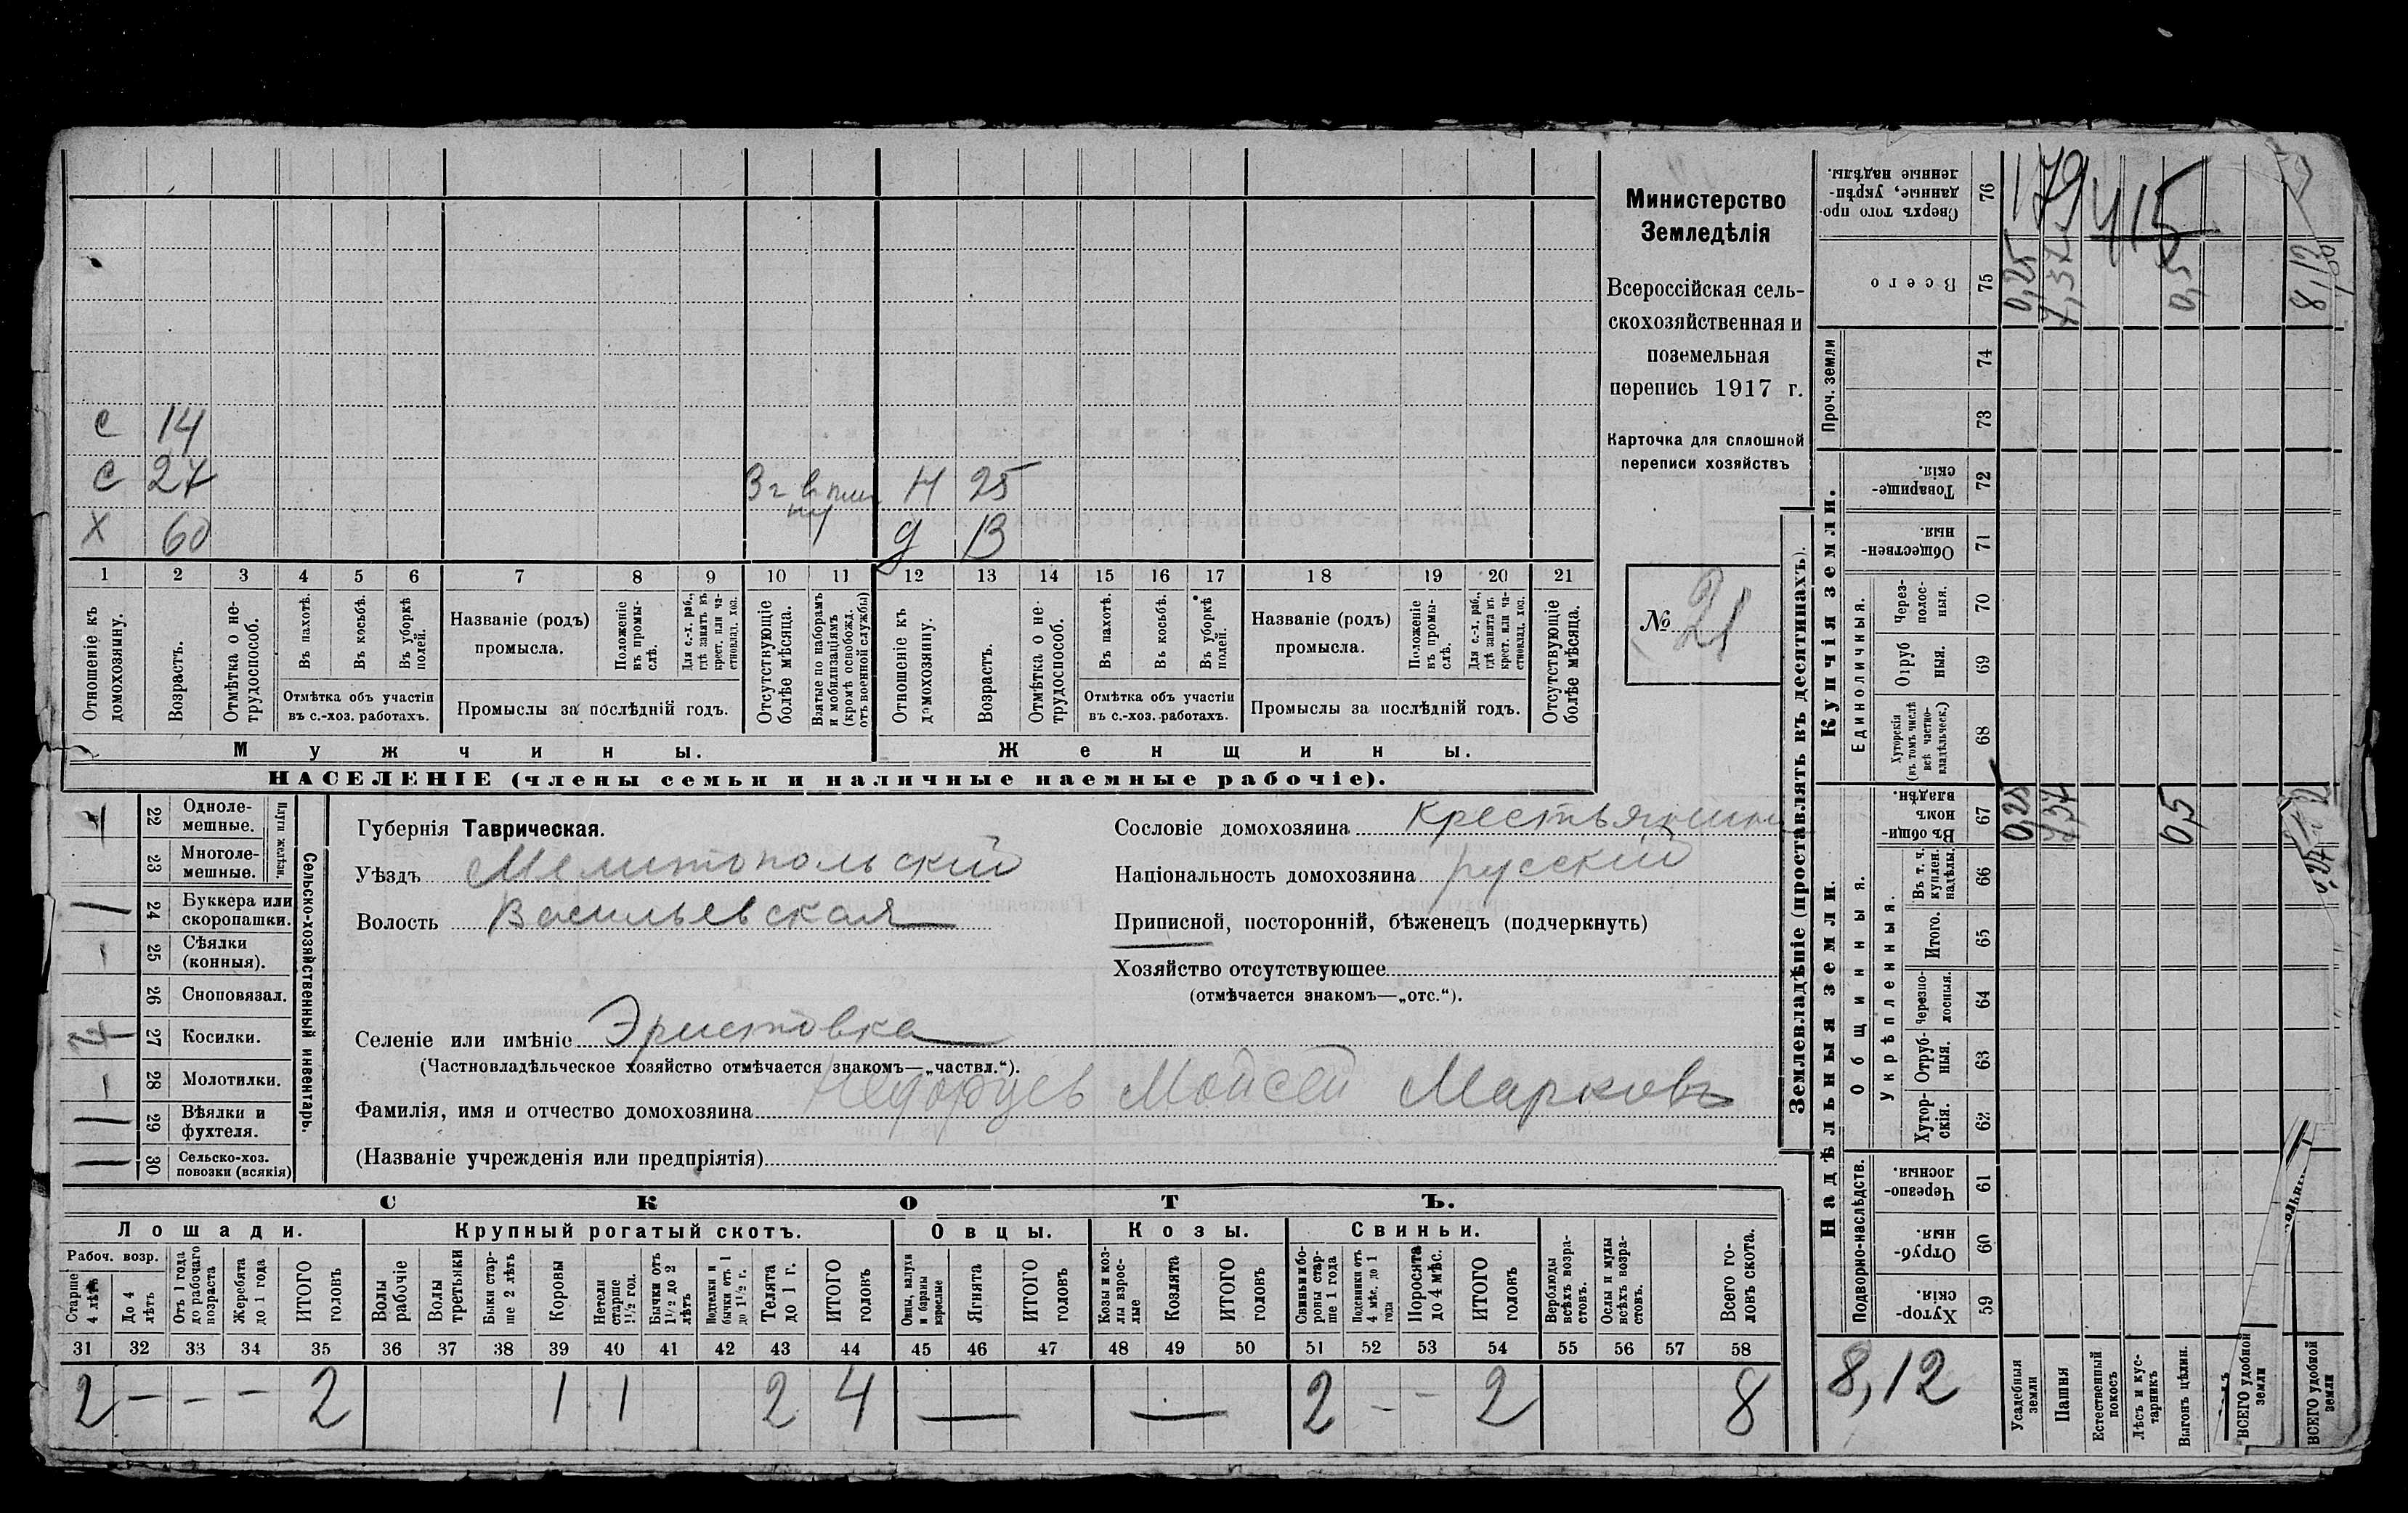 с 14
с 27
х 60
3 г. в плену
н 25
д 13
1 2 3 4 5 6 7 8 9 10 11 12 13 14 15 16 17 18 19 20 21
Отношеніе къ домохозяину.
Возрастъ.
Отмѣтка о нетрудоспособ.
Въ пахотѣ.
Въ косьбѣ.
Въ уборкѣ полей.
Отмѣтка объ участіи въ с.-хоз. работахъ.
Названіе (родъ) промысла.
Положеніе въ промыслѣ.
Для с.-х. раб., гдѣ занятъ въ крест. или частновлад. хоз.
Промыслы за послѣдній годъ.
Отсутствующіе болѣе мѣсяца.
Взятые по наборамъ и мобилизаціямъ (кромѣ освобожд. отъ военной службы)
Отношеніе къ домохозяину.
Возрастъ.
Отмѣтка о нетрудоспособ.
Въ пахотѣ.
Въ косьбѣ.
Въ уборкѣ полей.
Отмѣтка объ участіи въ с.-хоз. работахъ.
Названіе (родъ) промысла.
Положеніе въ промыслѣ.
Для с.-х. раб., гдѣ занята въ крест. или частновлад. хоз.
Промыслы за послѣдній годъ.
Отсутствующіе болѣе мѣсяца.
Мужчины.
Женщины.
НАСЕЛЕНІЕ (члены семьи и наличные наемные рабочіе).
Министерство
Земледѣлія
Всероссійская сель-
скохозяйственная и
поземельная
перепись 1917 г.
Карточка для сплошной
переписи хозяйствъ
№ 21
Сельско-хозяйственный инвентарь.
Плуги желѣзн.
22 Однолемешные.
23 Многолемешные.
24 Буккера или скоропашки.
25 Сѣялки (конныя).
26 Сноповязал.
27 Косилки.
28 Молотилки.
29 Вѣялки и фухтеля.
30 Сельско-хоз. повозки (всякія)
Губернія Таврическая.
Уѣздъ Мелитопольскій
Волость Васильевская
Селеніе или имѣніе Эристовка
(Частновладѣльческое хозяйство отмѣчается знакомъ—„частвл.“).
Фамилія, имя и отчество домохозяина Моисей Марковъ
(Названіе учрежденія или предпріятія)
Сословіе домохозяина крестьянинъ
Національность домохозяина русскій
Приписной, посторонній, бѣженецъ (подчеркнуть)
Хозяйство отсутствующее
(отмѣчается знакомъ—„отс.“).
СКОТЪ.
Лошади.
Рабоч. возр.
Старше 4 лѣтъ
До 4 лѣтъ
Отъ 1 года до рабочаго возраста
Жеребята до 1 года
ИТОГО головъ
Крупный рогатый скотъ.
Волы рабочіе
Волы третьяки
Быки старше 2 лѣтъ
Коровы
Нетели старше 1½ год.
Бычки отъ 1½ до 2 лѣтъ
Подтелки и бычки отъ 1 до 1½ г.
Телята до 1 г.
ИТОГО головъ
Овцы.
Овцы, валухи и бараны взрослые
Ягнята
ИТОГО головъ
Козы.
Козы и козлы взрослые
Козлята
ИТОГО головъ
Свиньи.
Свиньи и боровы старше 1 года
Подсвинки отъ 4 мѣс. до 1 года
Поросята до 4 мѣс.
ИТОГО головъ
Верблюды всѣхъ возрастовъ.
Ослы и мулы всѣхъ возрастовъ.
Всего головъ скота.
31 32 33 34 35 36 37 38 39 40 41 42 43 44 45 46 47 48 49 50 51 52 53 54 55 56 57 58
2 — — — 2 1 1 2 4 — — 2 — — 2 8
Землевладѣніе (проставлять въ десятинахъ).
Сверхъ того проданные, укрѣпленные надѣлы. 76
179 415
Всего 75
0,25 7,37 0,5 8,12
Проч. земли
74
73
Купчія земли.
Товарищескія. 72
Общественныя. 71
Единоличныя.
Черезполосныя. 70
Отрубныя. 69
Хуторскія (въ томъ числѣ всѣ частновладѣльческ.) 68
Надѣльныя земли.
Общинныя.
Въ общинномъ владѣн. 67
0,25 7,37 0,5
Укрѣпленныя.
Въ т. ч. куплен. надѣлы. 66
Итого. 65
Черезполосныя. 64
Отрубныя. 63
Хуторскія. 62
Подворно-наслѣдств.
Черезполосныя. 61
Отрубныя. 60
Хуторскія. 59
8,12
Усадебныя земли
Пашня
Естественный покосъ
Лѣсъ и кустарникъ
Выгонъ цѣлин.
ВСЕГО удобной земли
ВСЕГО удобной земли